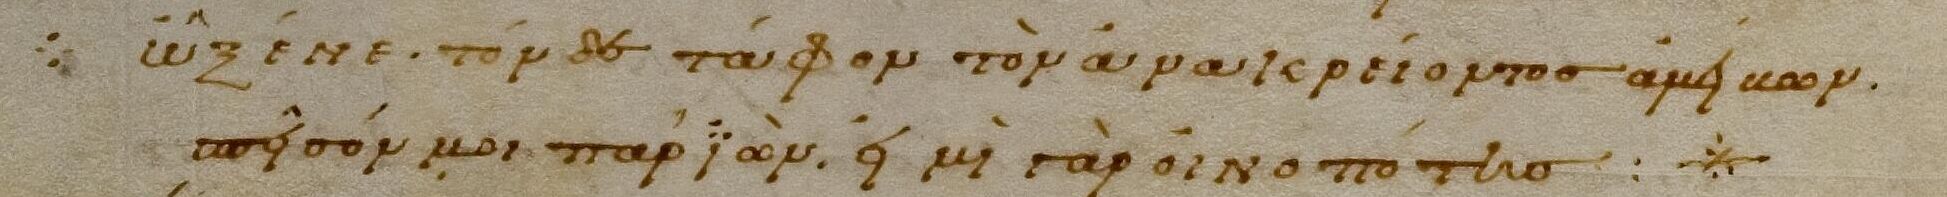 ⁘ ὦ ξένε. τόνδε τάφον τὸν ἀνακρείοντος ἀμείβων.
σπεῖσόν μοι παρϊὼν. εἰμὶ γὰρ οἰνοπότης : ※